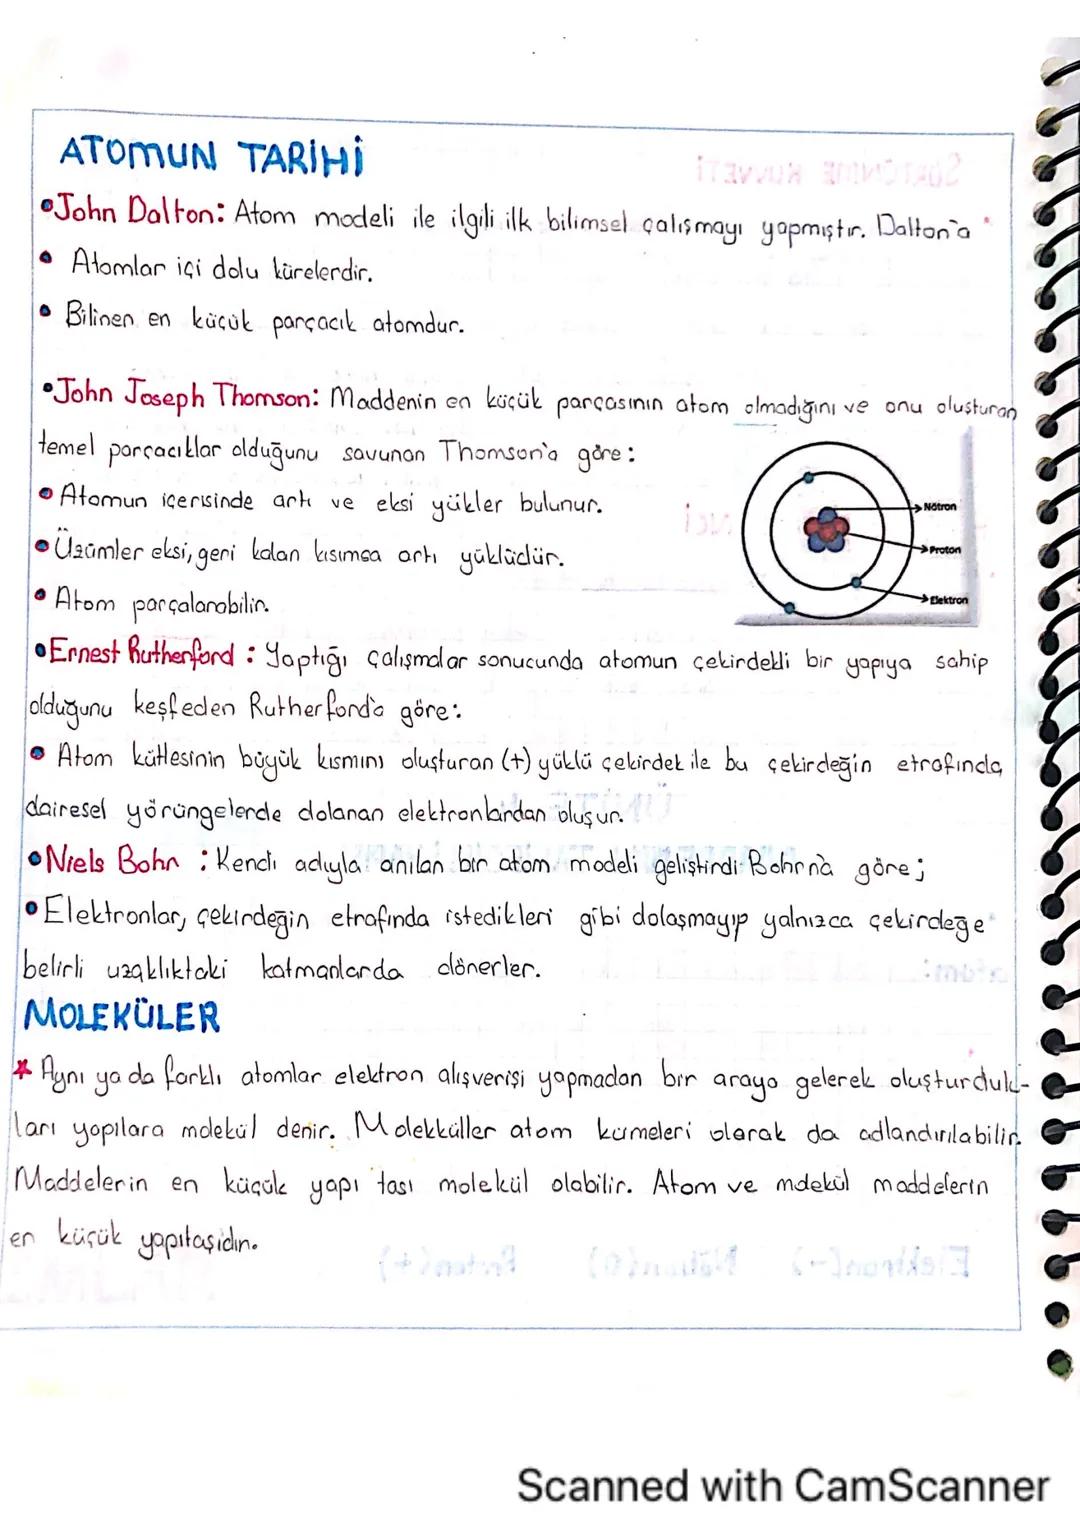 ATOMUN TARİHİ
•John Dalton: Atom modeli ile ilgili ilk bilimsel çalışmayı yapmıştır. Dalton'a
• Atomlar içi dolu kürelerdir.
• Bilinen en küçük parçacık atomdur.
•John Joseph Thomson: Maddenin en küçük parçasının atom olmadığını ve onu oluşturan
temel parçacıklar olduğunu savunan Thomson'a göre:
• Atomun içerisinde artı ve eksi yükler bulunur.
• Üzümler eksi, geri kalan kısımsa artı yüklüdür.
• Atom parçalanabilir.
Nötron
Proton
Elektron
•Ernest Rutherford : Yaptığı çalışmalar sonucunda atomun çekirdekli bir yapıya sahip
olduğunu keşfeden Rutherford'a göre:
• Atom kütlesinin büyük kısmını oluşturan (+) yüklü çekirdek ile bu çekirdeğin etrafında
dairesel yörüngelerde dolanan elektronlardan oluşur.
•Niels Bohr : Kendi adıyla anılan bir atom modeli geliştirdi Bohrna göre;
•Elektronlar, çekirdeğin etrafında istedikleri gibi dolaşmayıp yalnızca çekirdeğe
belirli uzaklıktaki katmanlarda dönerler.
MOLEKÜLER
* Aynı ya da farklı atomlar elektron alışverişi yapmadan bir araya gelerek oluşturduk-
ları yapılara molekül denir. Molekküller atom kümeleri olarak da adlandırılabilir.
Maddelerin en küçük yapı tası molekül olabilir. Atom ve molekül maddelerin
en küçük yapıtaşıdır.
Scanned with CamScanner